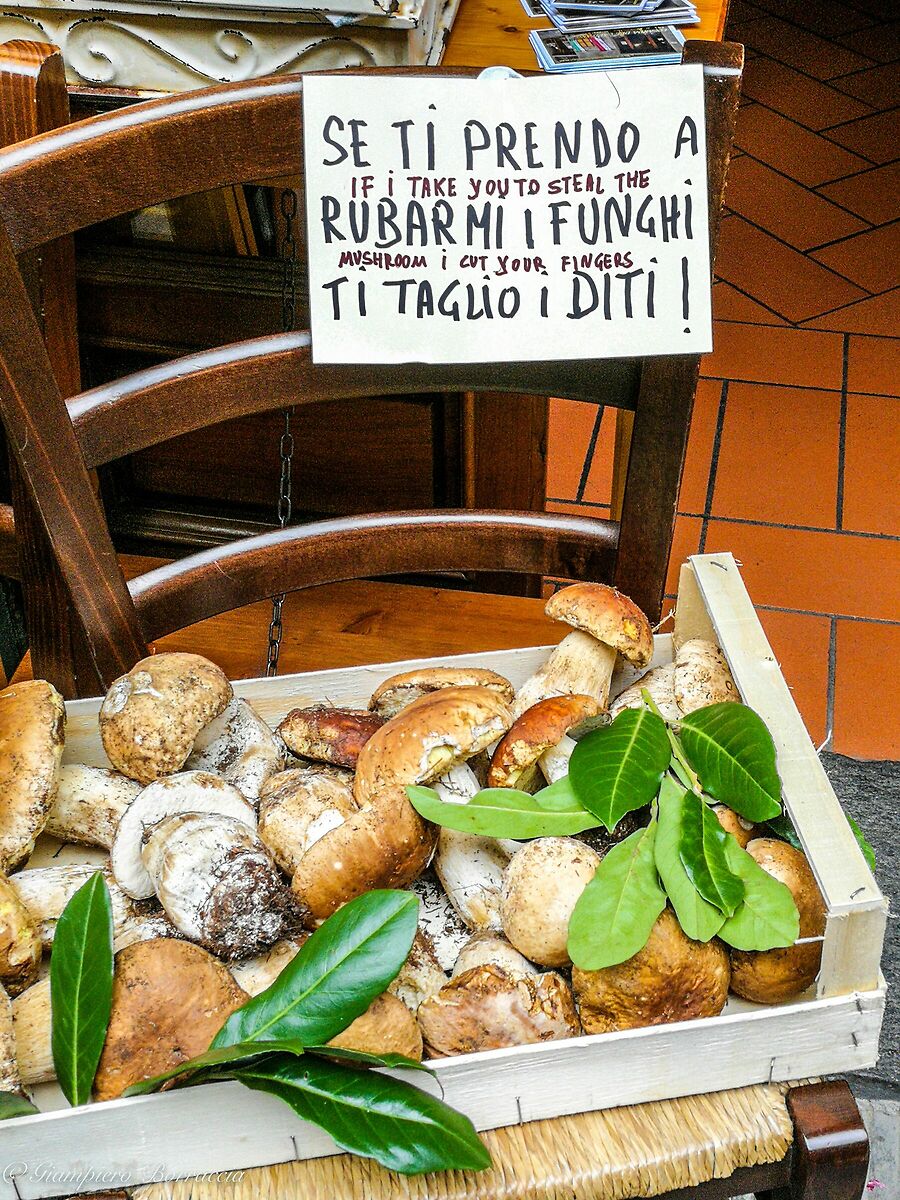 SE TI PRENDO A
IF i TAKE YOU TO STEAL THE
RUBARMI I FUNGHI
MUSHROOM i CUT YOUR FINGERS
TI TAGLIO i DITI !
© Giampiero Borraccia